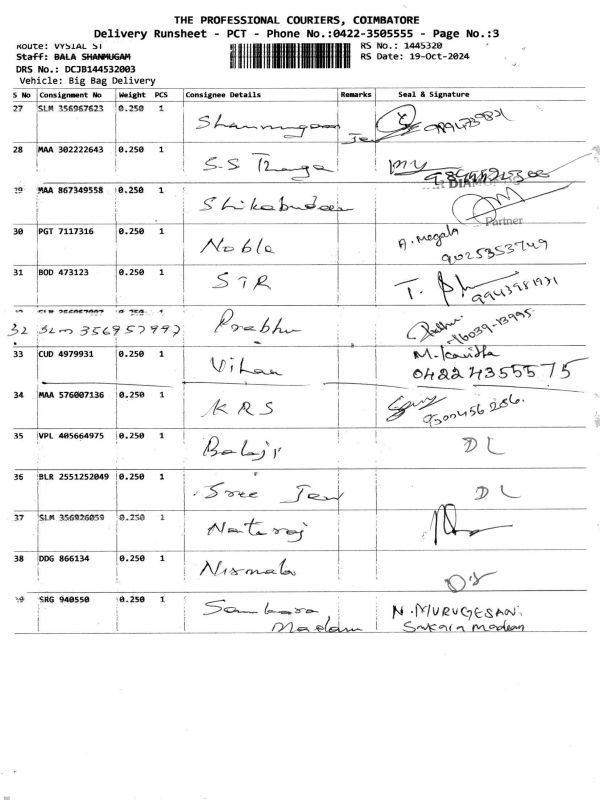 THE PROFESSIONAL COURIERS, COIMBATORE
Delivery Runsheet - PCT - Phone No.:0422-3505555 - Page No.:3
Route: VYSIAL ST
RS No.: 1445320
Staff: BALA SHANMUGAM
RS Date: 19-Oct-2024
DRS No.: DCJB144532003
Vehicle: Big Bag Delivery
S No Consignment No Weight PCS Consignee Details Remarks Seal & Signature
27 SLM 356967623 0.250 1 Shanmugam Jew
28 MAA 302222643 0.250 1 S.S Thanga
29 MAA 867349558 0.250 1 Shikabudeen
Partner
30 PGT 7117316 0.250 1 Noble A. Megala
9025353749
31 BOD 473123 0.250 1 STR T.
9943981931
32 SLM 356957997 Prabhu
33 CUD 4979931 0.250 1 Vihaa M. Kavitha
04224355575
34 MAA 576007136 0.250 1 KRS
9500456286.
35 VPL 405664975 0.250 1 Balaji DL
36 BLR 2551252049 0.250 1 Sree Jew DL
37 SLM 356926059 0.250 1 Nataraj
38 DDG 866134 0.250 1 Nirmala
39 SRG 940550 0.250 1 Sankara N. MURUGESAN.
Madam Sakara madean